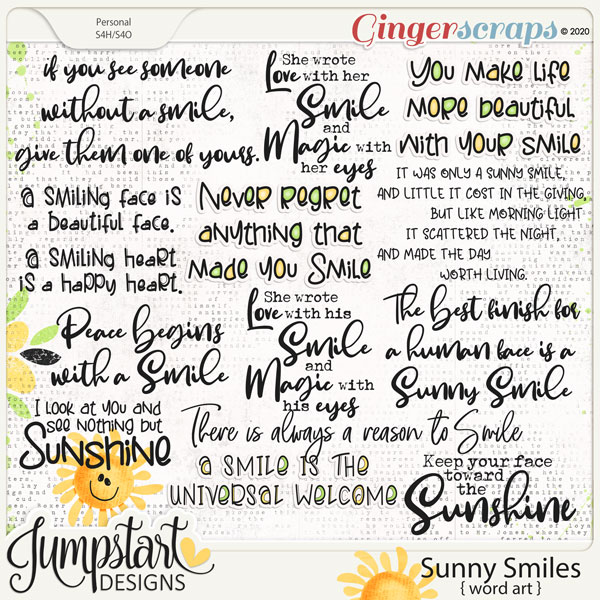 Personal
S4H/S4O
Gingerscraps © 2020
if you see someone
without a smile,
give them one of yours.
She wrote
Love with her
Smile
and
Magic with
her eyes
You Make Life
More Beautiful
With Your Smile
It was only a sunny smile,
and little it cost in the giving,
but like morning light
it scattered the night,
and made the day
worth living.
a smiling face is
a beautiful face.
a smiling heart
is a happy heart.
Never Regret
anything that
Made You Smile
Peace begins
with a Smile
She wrote
Love with his
Smile
and
Magic with
his eyes
The best finish for
a human face is a
Sunny Smile
I look at you and
see nothing but
Sunshine
There is always a reason to Smile
a smile is the
universal welcome
Keep your face
toward
the
Sunshine
Jumpstart
DESIGNS
Sunny Smiles
{ word art }